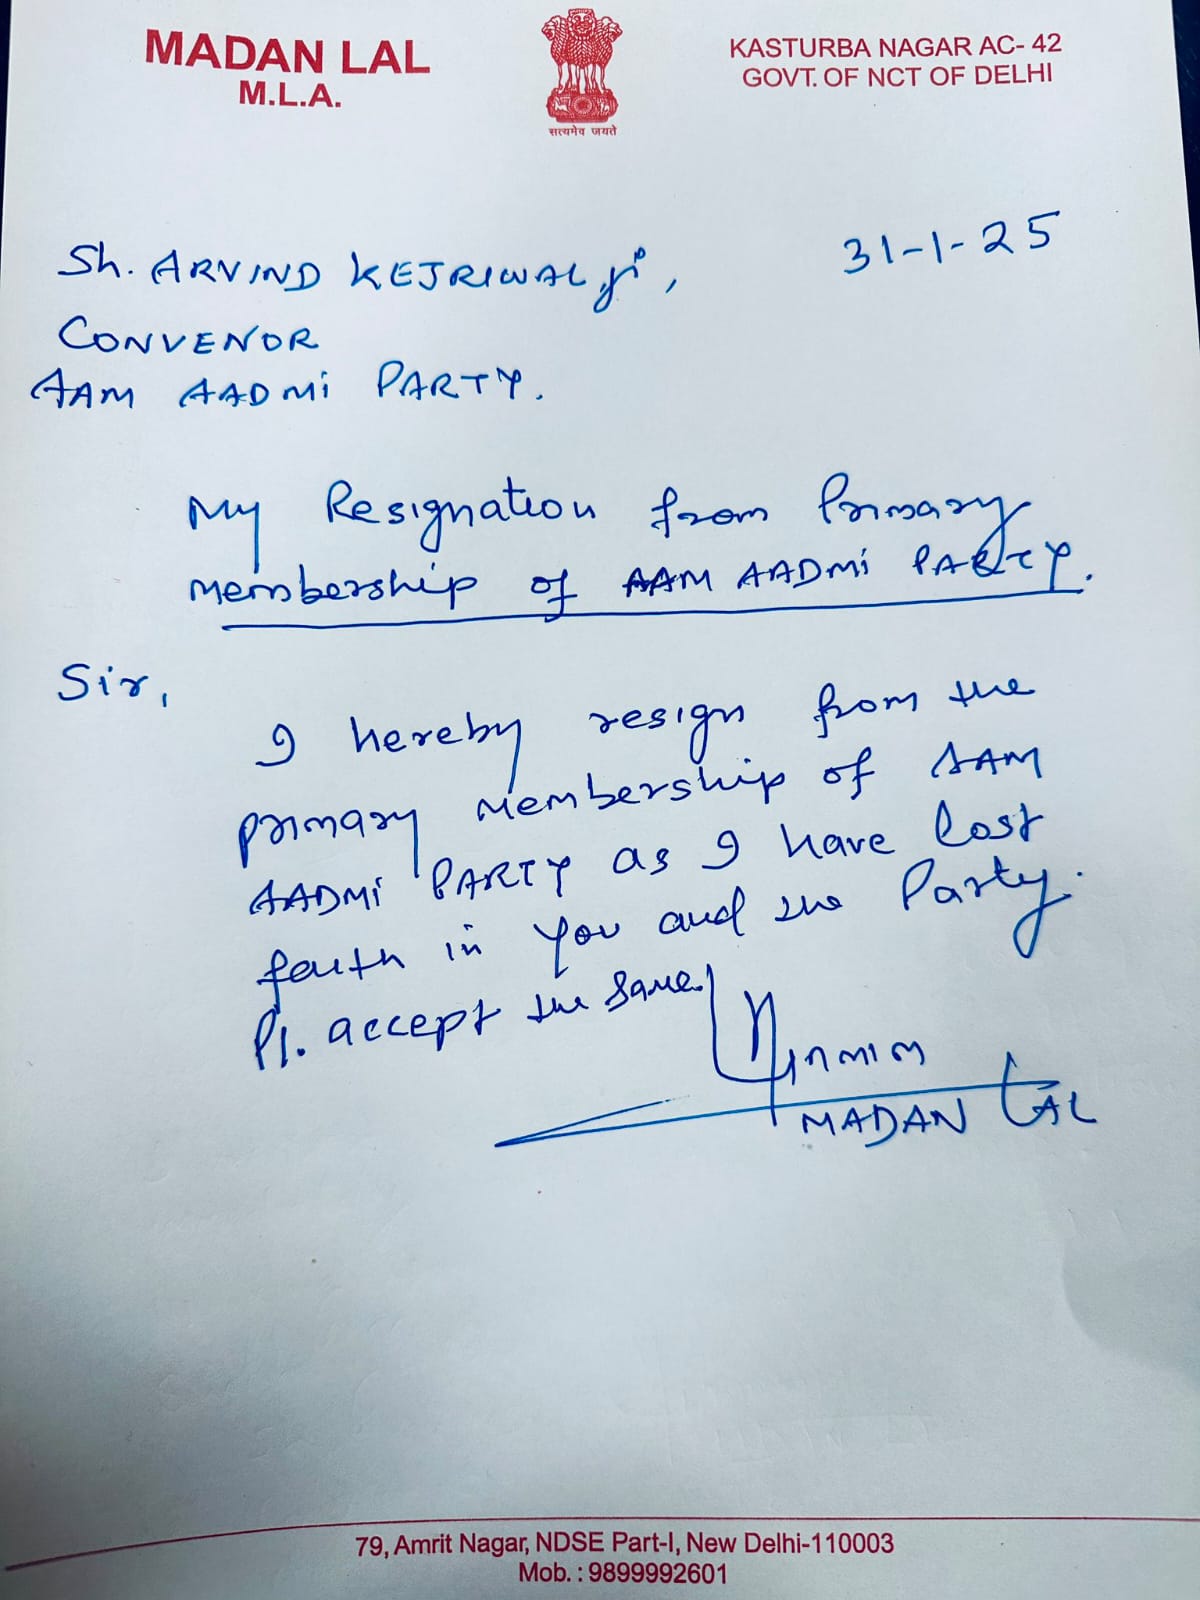 MADAN LAL
M.L.A.
सत्यमेव जयते
KASTURBA NAGAR AC- 42
GOVT. OF NCT OF DELHI
31-1-25
Sh. ARVIND KEJRIWAL ji,
CONVENOR
AAM AADMI PARTY.
My Resignation from Primary
membership of AAM AADMI PARTY.
Sir,
I hereby resign from the
primary membership of AAM
AADMI PARTY as I have lost
faith in you and the Party.
Pl. accept the same.
MADAN LAL
79, Amrit Nagar, NDSE Part-I, New Delhi-110003
Mob. : 9899992601